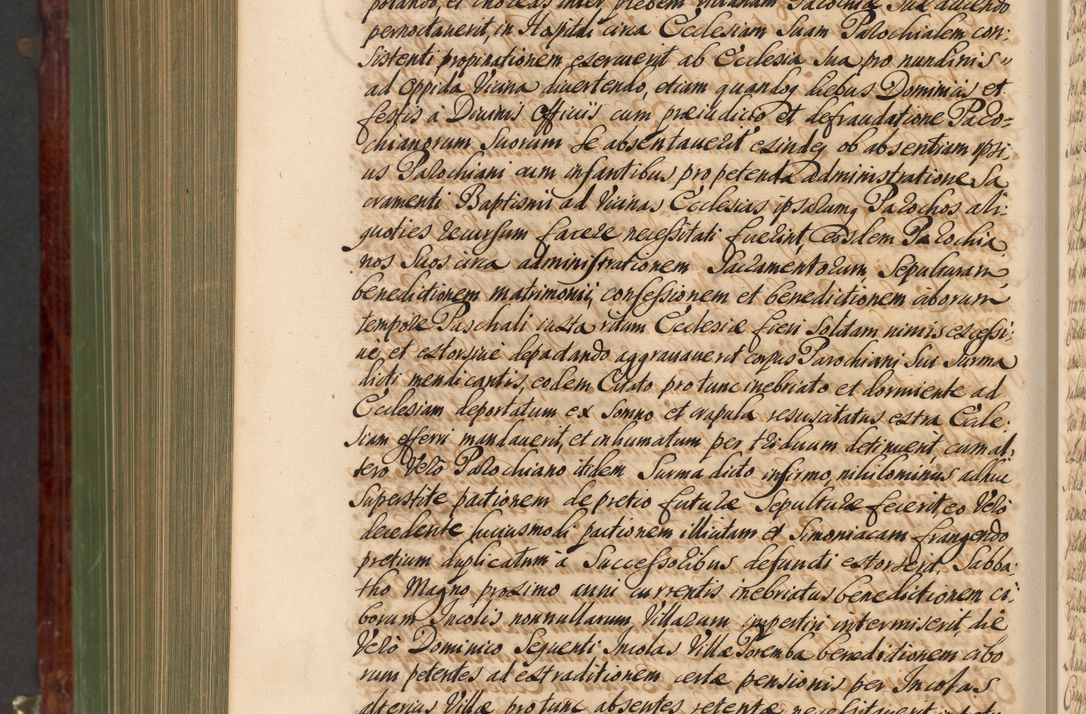 potando, et choreas inter plebem Parochiæ suæ ducendo
pernoctaverit, in Hospitali circa Ecclesiam Suam Parochialem con-
sistenti, propinationem exercuerit ab Ecclesia Sua pro nundinis
ad Oppida Vicina divertendo, etiam quandoq diebus Dominicis et
festis a Divinis Officiis cum præiudicio et defraudatione Paro-
chianorum Suorum Se absentaverit exindeq ob absentiam ipsi,
us Parochiani cum infantibus pro petenda administratione Sa
cramenti Baptismi ad Vicinas Ecclesias ipsarumq Parochos ali-
quoties recursum facere necessitati fuerint, eosdem Parochia
nos Suos circa administrationem Sacramentorum, Sepulturam
benedictionem matrimonij, confessionem et benedictionem ciborum
tempore Paschali iuxta ritum Ecclesiæ fieri Solitam nimis excessi-
ve, et extorsive depactando aggravaverit corpus Parochiani Sui Surma
dicti mendicantis, eodem Curato pro tunc inebriato et dormiente ad
Ecclesiam deportatum ex Somno et crapula resuscitatus extra Eccle-
siam efferri mandaverit, et inhumatum per triduum detinuerit, cum al,
tero Vero Parochiano itidem Surma dicto infirmo, nihilominus adhuc
Superstite pactionem de pretio futuræ Sepulturæ fecerit eo Vero
decedente huiusmodi pactionem illicitam et Simoniacam frangendo
pretium duplicatum a Successoribus defuncti extorserit, Sabba-
tho Magno proximo anni currentis inebriatus benedictionem ci-
borum Incolis nonnullarum Villarum impertiri intermiserit, die
Vero Dominico Sequenti Incolas Villæ Poremba benedictionem cibo
rum petentes ad extraditionem certæ pensionis per Incolas
alterius Villæ pro tunc absentes retentæ